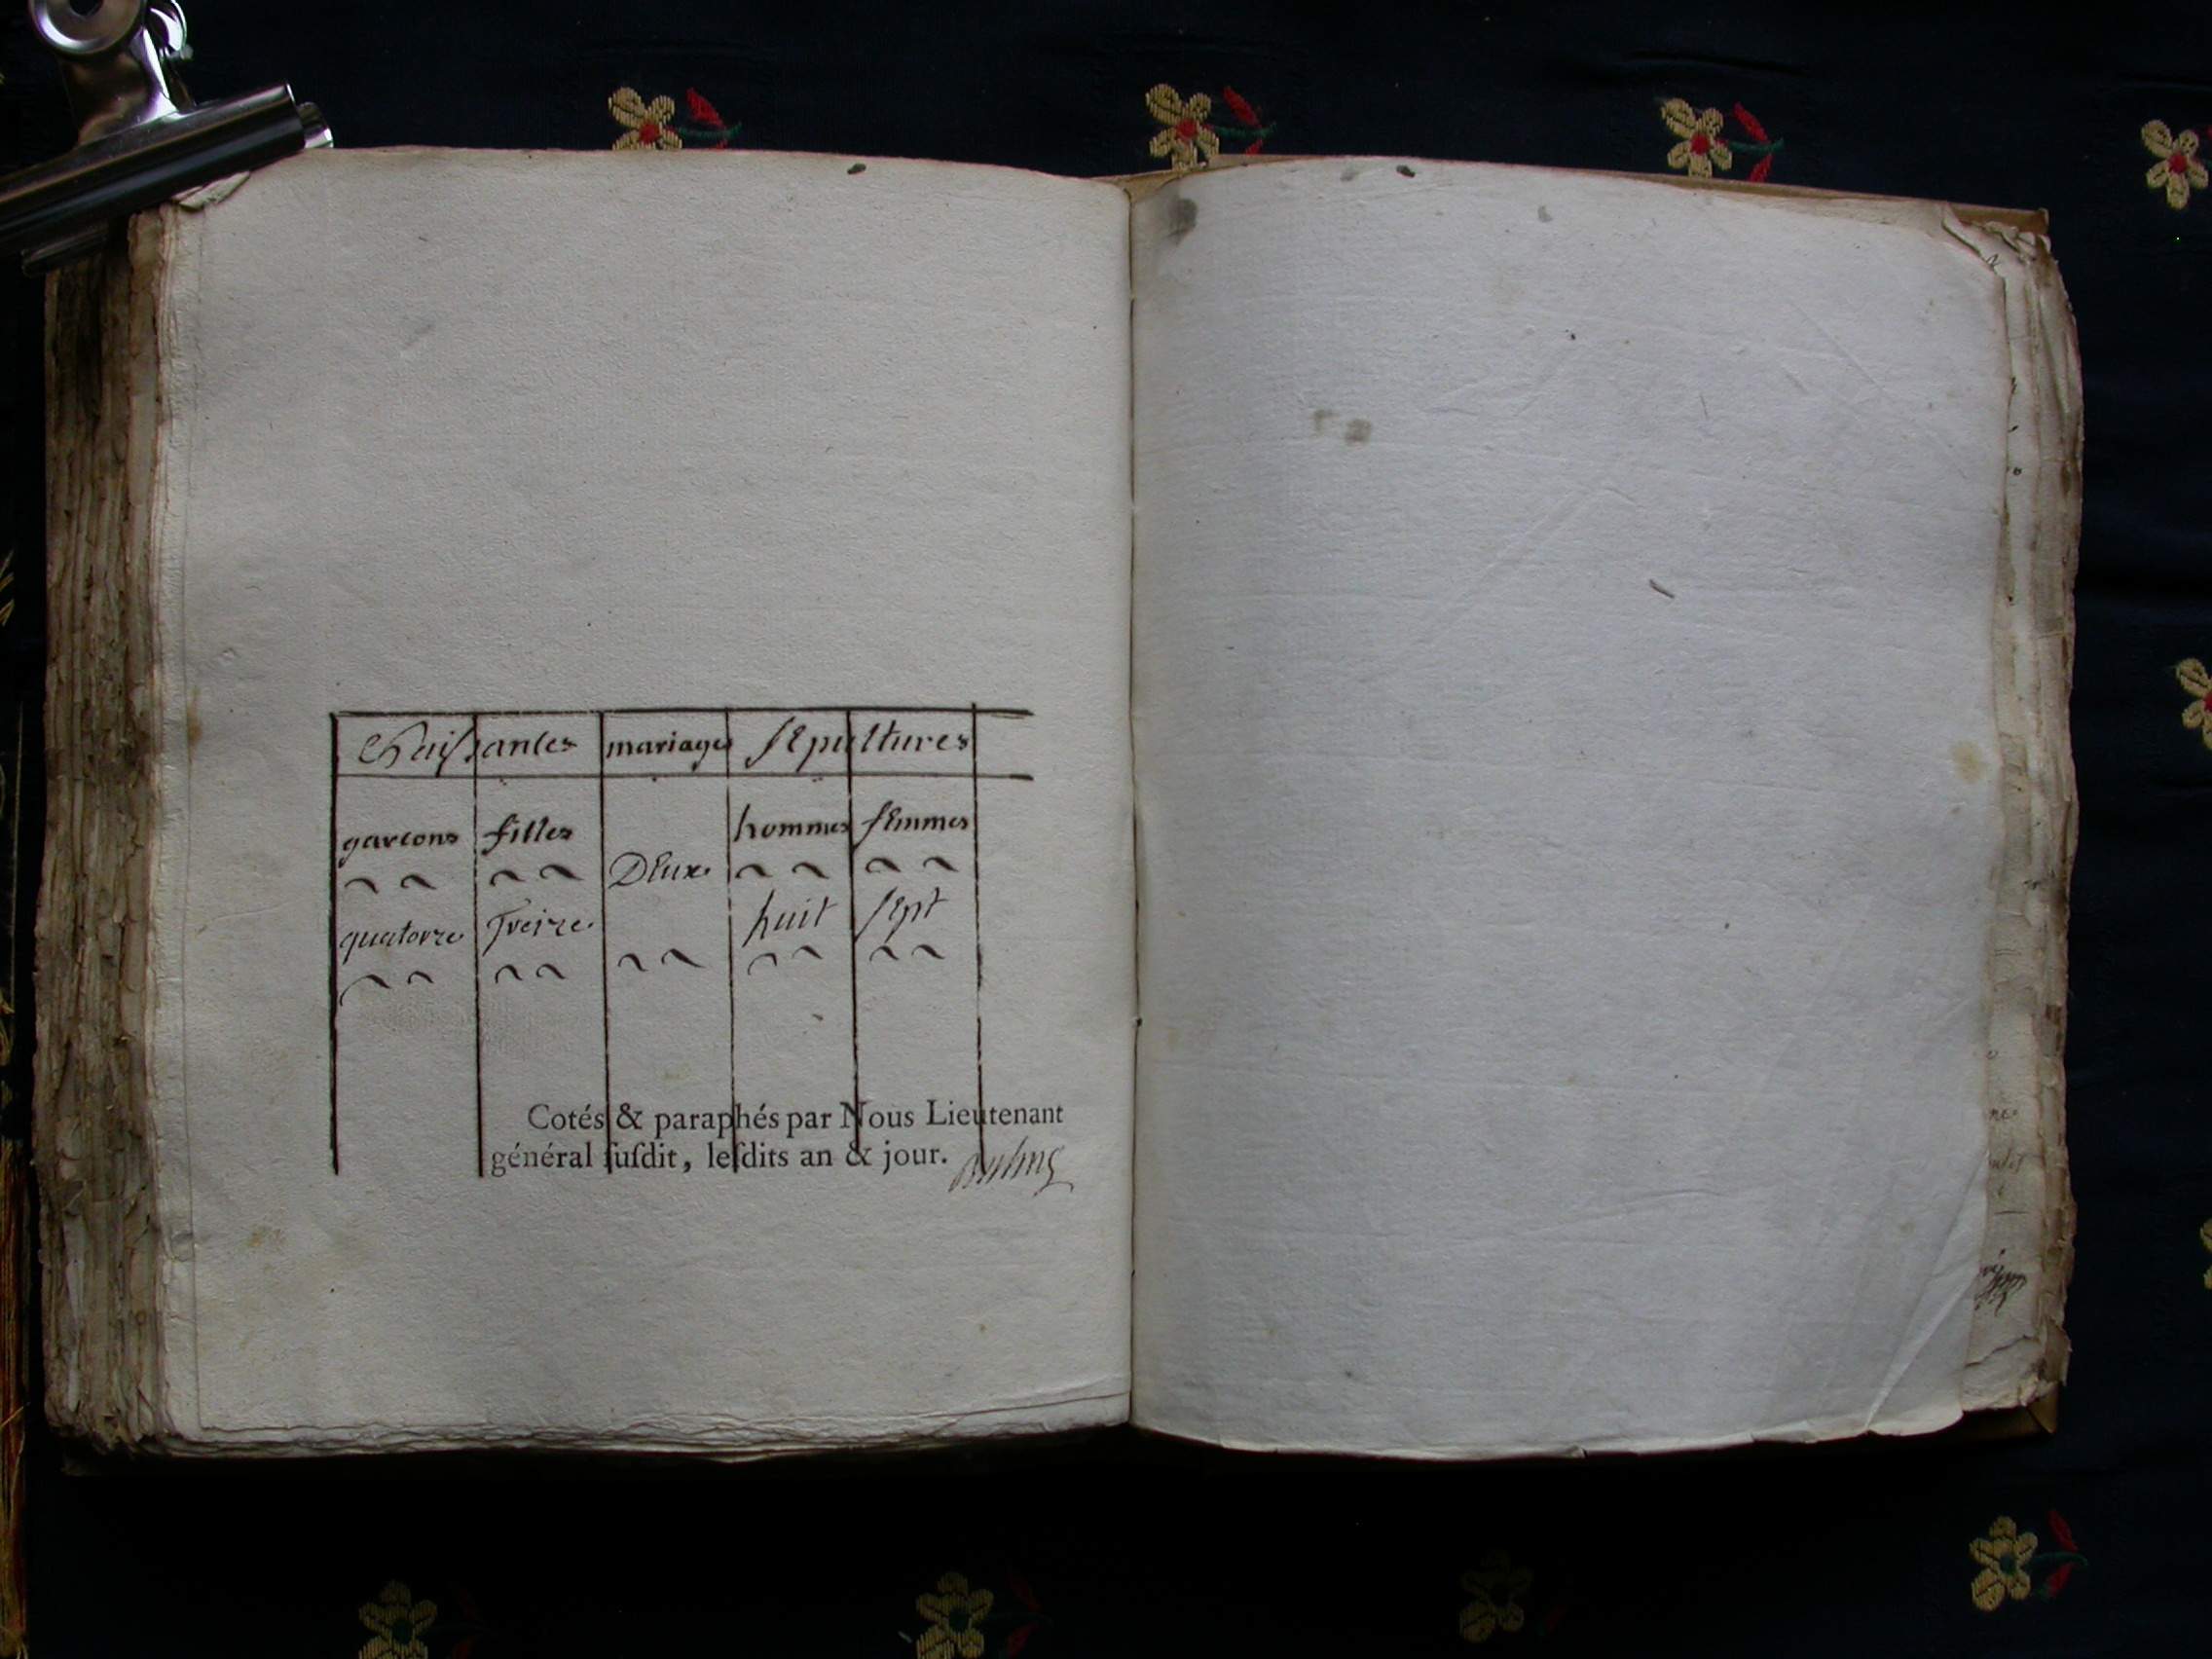 Naissances mariages sépultures
garcons filles hommes femmes
Deux
quatorze Treize huit sept
Cotés & paraphés par Nous Lieutenant
général ſuſdit, leſdits an & jour.